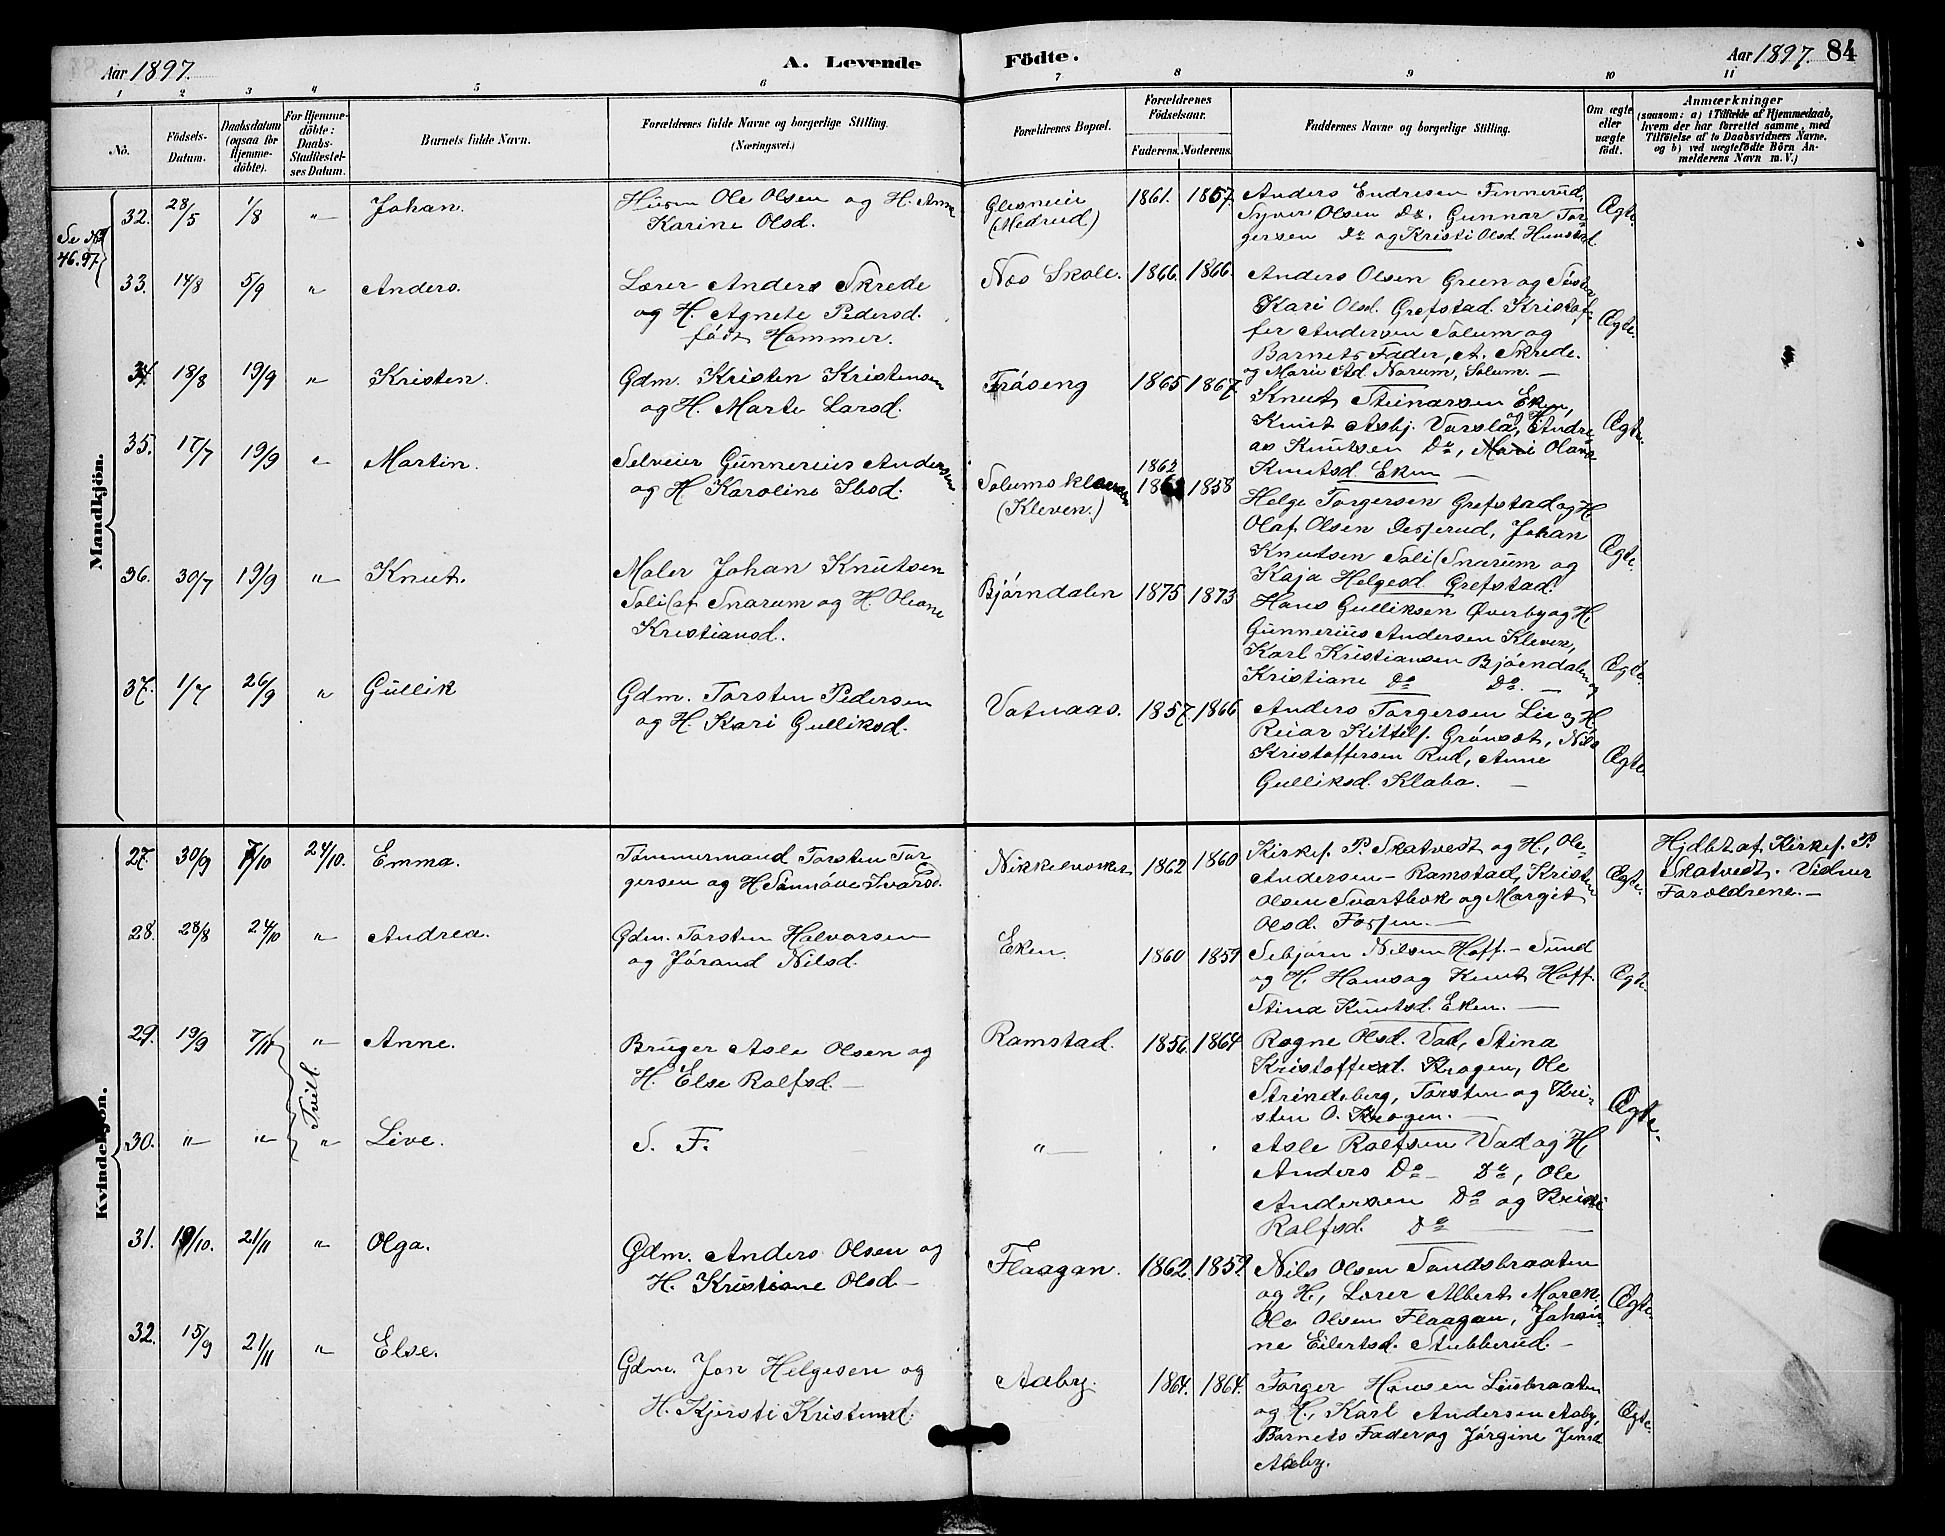 Aar 1897. A. Levende Födte. Aar 1897. 84
1 2 3 4 5 6 7 8 9 10 11
No.
Födsels-Datum.
Daabsdatum (ogsaa for Hjemme-döbte).
For Hjemme-döbte: Daabs-Stadfæstel-ses Datum.
Barnets fulde Navn.
Forældrenes fulde Navne og borgerlige Stilling.
(Næringsvei.)
Forældrenes Bopæl.
Forældrenes Födselsaar.
Faderens. Moderens.
Faddernes Navne og borgerlige Stilling.
Om ægte eller uægte födt.
Anmærkninger
(saasom: a) i Tilfælde af Hjemmedaab, hvem der har forrettet samme, med Tilföielse af to Daabsvidners Navne. og b) ved uægtefödte Börn An-melderens Navn m. V.)
Mandkjön.
Se No 46.97
32. 28/5 1/8 " Johan.
Husm Ole Olsen og H. Anne
Karine Olsd.
Glesneeie
(Medrud)
1861. 1857.
Anders Endresen Finnerud,
Syver Olsen Do. Gunnar Tor-
gersen Do og Kristi Olsd. Hunstad.
Ægte.
33. 14/8 5/9 " Anders.
Lærer Anders Skrede
og H. Agnete Pedersd.
födt Hammer.
Næs Skole.
1866. 1866.
Anders Olsen Green og Søster
Kari Olsd. Grefstad. Kristof-
fer Andersen Solum og
Barnets Fader, A. Skrede.
og Marie Ad. Narum, Solum. —
Ægte.
34. 18/8 19/9 " Kristen.
Gdm. Kristen Kristensen
og H. Marte Larsd.
Fråseng
1865 1867.
Knut Steinarsen Eken,
Knut Asbj. Varsla, og H. Andre-
as Knutsen Do, Mari Olava
Knutsd. Eken —
Ægte.
35. 17/7 19/9 " Martin.
Selveier Gunnerius Andersen
og H Karoline Ibsd.
Solumskleven
(Kleven.)
1862 1858
Helge Torgersen Grefstad og H.
Olaf Olsen Desserud, Johan
Knutsen Soli/Snarum og
Kaja Helgesd. Grefstad.
Ægte.
36. 30/7 19/9 " Knut.
Maler Johan Knutsen
Soli/af Snarum og H. Oleane
Kristiansd.
Bjørndalen
1875 1873
Hans Gulliksen Øverby og H,
Gunnerius Andersen Kleven,
Karl Kristiansen Bjørndalen og
Kristiane Do Do. —
Ægte.
37. 1/7 26/9 " Gullik
Gdm. Torsten Pedersen
og H. Kari Gulliksd.
Vatnaas.
1857. 1866
Anders Torgersen Lie og H.
Reiar Kittelf. Grønsæt, Nils
Kristoffersen Rud, Anne
Gulliksd. Klaba. —
Ægte.
Kvindekjön.
27. 30/9 7/10 24/10. Emma.
Tømmermand Torsten Tor-
gersen og H Sønnøve Ivarsd.
Nikkelverket
1862 1860
Kirkes. P. Skatvedt og H, Ole-
Andersen - Ramstad, Kristen
Olsen Svartbæk og Margit
Olsd. Forsjen. —
Ægte.
Hjdbt af Kirkes. P.
Skatvedt. Vidner
Forældrene. —
28. 28/8 24/10 " Andrea.
Gdm. Torsten Halvorsen
og Jørand Nilsd.
Eken.
1860 1859
Sebjørn Nilsen Hoff. - Sund
og H, Hans og Knut Hoff.
Stina Knutsd. Eken. —
Ægte.
29. 19/9 7/11 " Anne.
Tvill.
Bruger Asle Olsen og
H. Else Rolfsd. —
Ramstad.
1856. 1864
Ragne Olsd. Vad, Stina
Kristoffersd. Kragen, Ole
Strindeberg, Torsten og Kri-
sten O. Kragen. —
Ægte.
30. " " " Live.
S. F.
"
Asle Rolfsen Vad og H,
Anders Do - Do, Ole
Andersen Do og Kristi
Rolfsd. Do —
31. 19/10. 21/11 " Olga.
Gdm. Anders Olsen og
H. Kristiane Olsd —
Flaagan.
1862. 1859.
Nils Olsen Sandsbraaten
og H, Lærer Albert Moren.
Ole Olsen Flaagan, Johan-
ne Eilertsd. Stubberud. —
Ægte.
32. 15/9 21/11 " Else.
Gdm. Jon Helgesen og
H. Kjersti Kristensd.
Aaby.
1864. 1864.
Torger Hansen Liisbraaten
og H, Karl Andersen Aaby,
Barnets Fader og Jørgine Jensd
Aaby.
Ægte.